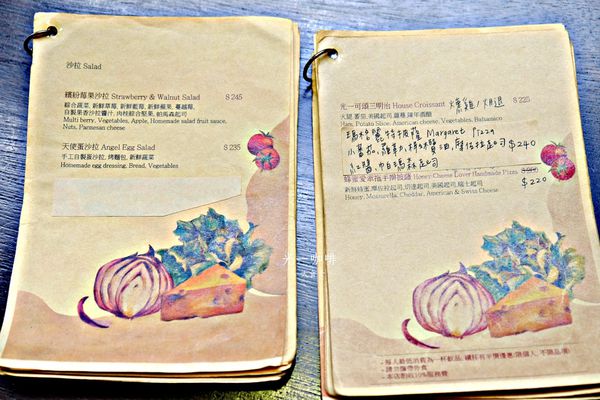 沙拉 Salad
繽紛莓果沙拉 Strawberry & Walnut Salad $ 245
綜合蔬菜, 新鮮草莓, 新鮮藍莓, 新鮮蘋果, 蔓越莓,
自製果香沙拉醬汁, 肉桂綜合堅果, 帕馬森起司
Multi berry, Vegetables, Apple, Homemade salad fruit sauce,
Nuts, Parmesan cheese
天使蛋沙拉 Angel Egg Salad $ 235
手工自製蛋沙拉, 烤麵包, 新鮮蔬菜
Homemade egg dressing, Bread, Vegetables
光一可頌三明治 House Croissant 燻雞/火腿 $ 225
Ham, Potato Slice, American cheese, Vegetables, Balsamico
瑪格麗特披薩 Margaret Pizza
小番茄, 羅勒, 摩佐拉起司 $240
紅醬, 帕瑪森起司
蜂蜜愛乖拖手撖披薩 Honey Cheese Lover Handmade Pizza
新鮮蜂蜜, 摩佐拉起司, 切達起司, 美國起司, 瑞士起司
Honey, Mozzarella, Cheddar, American & Swiss Cheese
$220
光一咖啡
- 每人最低消費為一杯飲品, 續杯有半價優惠(限個人, 不限品項)
- 請勿攜帶外食
- 本店酌收10%服務費